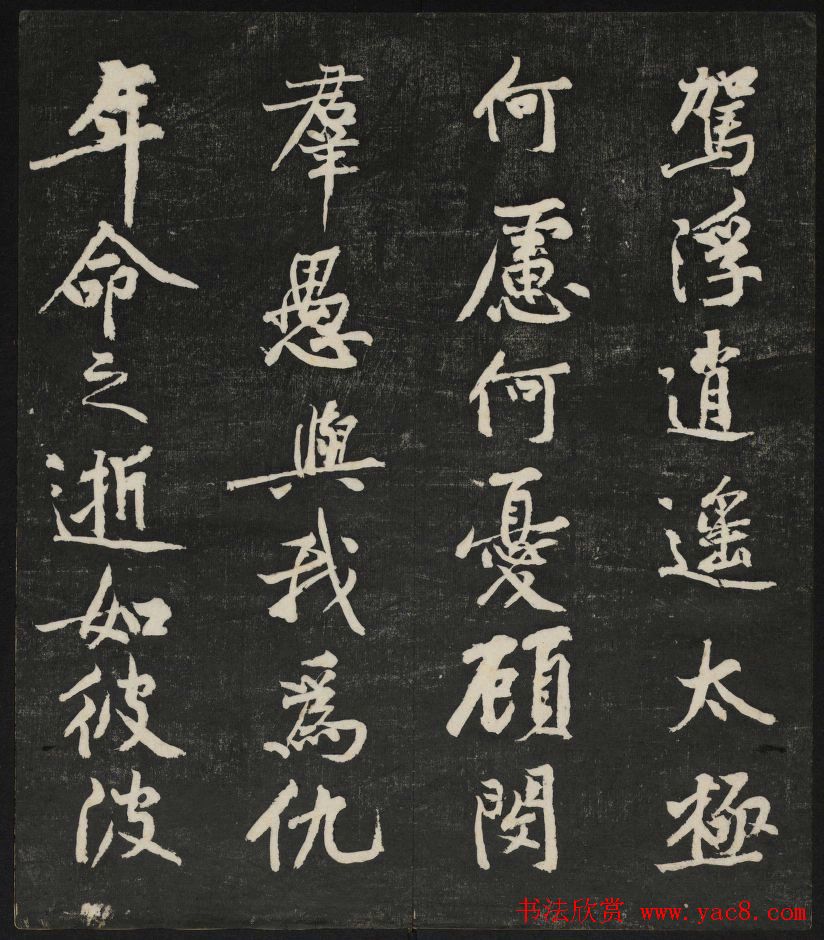 駕浮逍遥太極
何慮何憂顧閔
羣愚與我為仇
年命之逝如彼波
书法欣赏 www.yac8.com